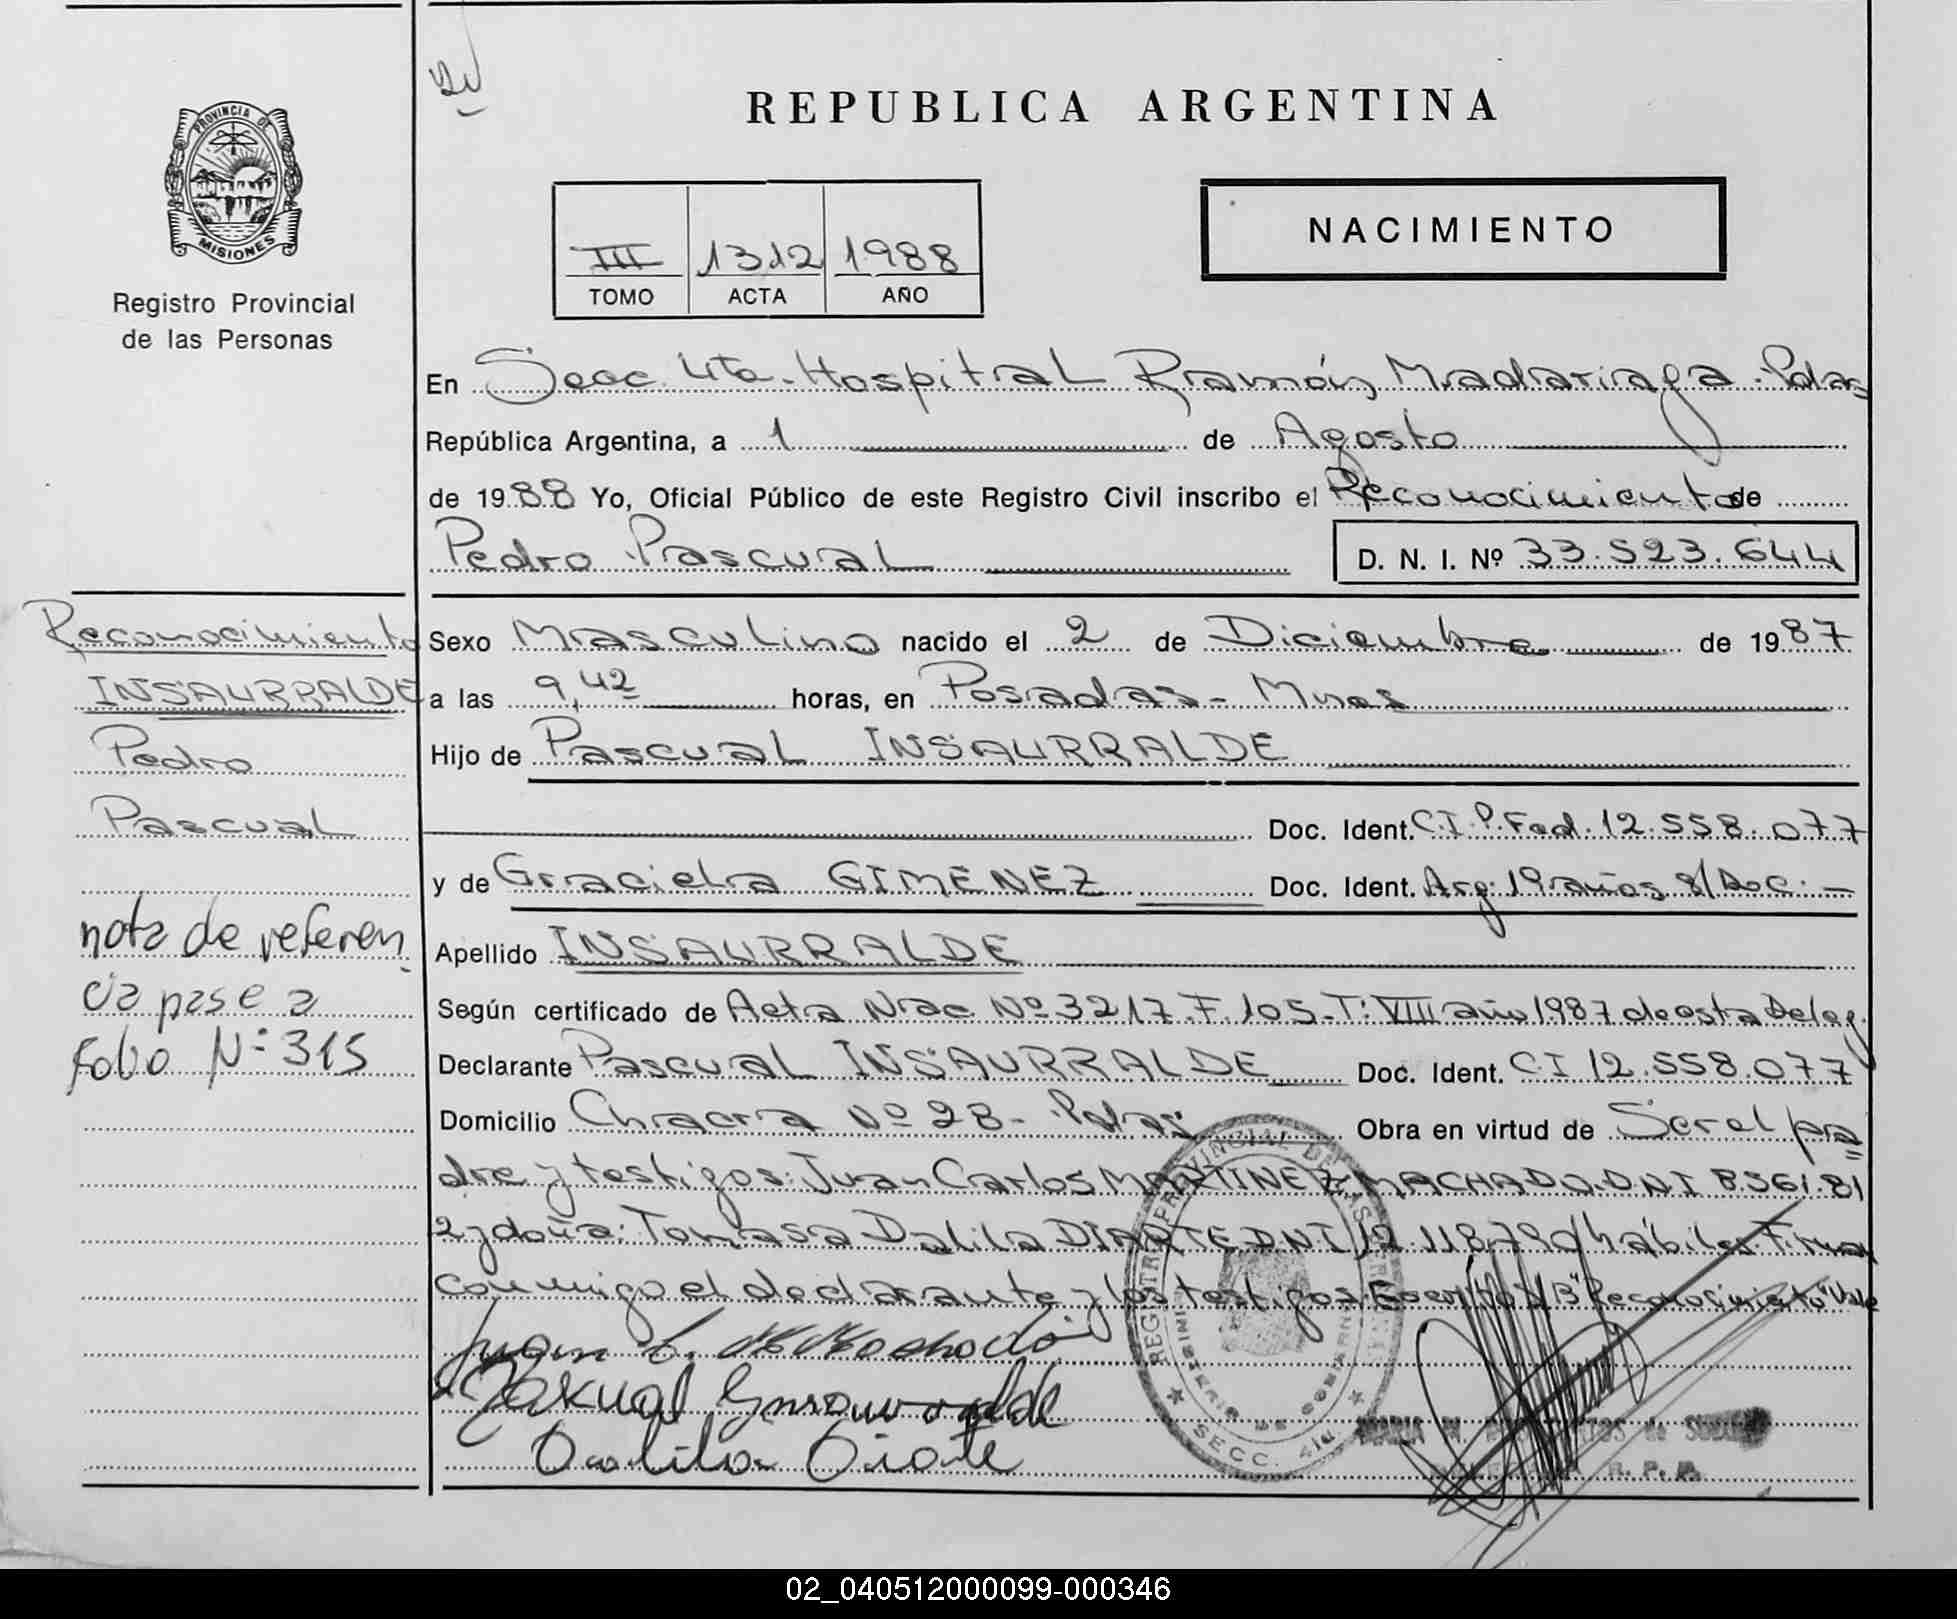 REPUBLICA ARGENTINA
PROVINCIA DE
MISIONES
Registro Provincial
de las Personas
III 1312 1988
TOMO ACTA AÑO
NACIMIENTO
En Secc 4ta. Hospital Ramón Madariaga. Pdas
República Argentina, a 1 de Agosto
de 1988 Yo, Oficial Público de este Registro Civil inscribo el Reconocimiento de
Pedro Pascual D. N. I. Nº 33.523.644
Sexo Masculino nacido el 2 de Diciembre de 1987
a las 9,42 horas, en Posadas - Mnes
Hijo de Pascual INSAURRALDE
Doc. Ident. C.I.P.Fed. 12.558.077
y de Graciela GIMENEZ Doc. Ident. Arg: 19 años s/Doc. -
Apellido INSAURRALDE
Según certificado de Acta Nac. Nº 3217. F. 105. T: VIII año 1987 de esta Deleg.
Declarante Pascual INSAURRALDE Doc. Ident. CI 12.558.077
Domicilio Chacra Nº 28 - Pdas Obra en virtud de Ser el pa
dre y testigos: Juan Carlos MARTINEZ MACHADO. DNI 8.361.81
2 y doña: Tomasa Dalila DIARTE DNI 12.118.790/hábiles. Firman
conmigo el declarante y los testigos. Escrito S/B "Reconocimiento" Vale
Juan C. M. Machado
Pascual Insaurralde
Dalila Diarte
Reconocimiento
INSAURRALDE
Pedro
Pascual
nota de referen
cia pase a
folio Nº 315
REGISTRO PROVINCIAL DE LAS PERSONAS
MINISTERIO DE GOBIERNO
SECC. 4ta.
MARIA M. de
R. P. P.
02_040512000099-000346